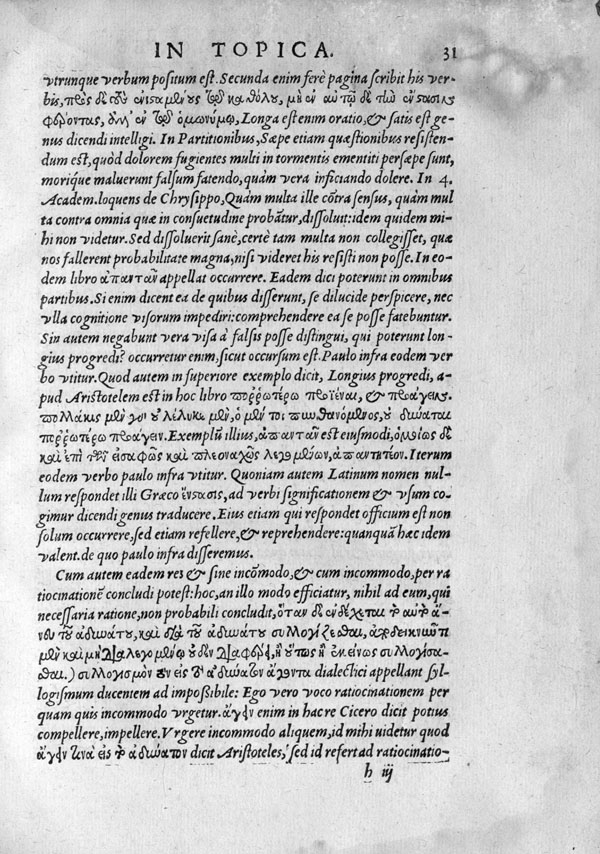 IN TOPICA. 31
vtrunque verbum positum est. Secunda enim ferè pagina scribit his ver-
bis, πρὸς δὲ τοὺς ἐνισαμένους τοῦ καθόλου, μὴ ἐν αὐτῷ δὲ τὼ ἔνσασιν
φέροντας, ἀλλ' ἐν τῷ ὁμωνύμῳ, Longa est enim oratio, & satis est ge-
nus dicendi intelligi. In Partitionibus, Sæpe etiam quæstionibus resisten-
dum est, quòd dolorem fugientes multi in tormentis ementiti persæpe sunt,
morique maluerunt falsum fatendo, quàm vera inficiando dolere. In 4.
Academ. loquens de Chrysippo, Quàm multa ille cōtra sensus, quàm mul
ta contra omnia quæ in consuetudine probātur, dissoluit: idem quidem mi-
hi non videtur. Sed dissoluerit sanè, certè tam multa non collegisset, quæ
nos fallerent probabilitate magna, nisi videret his resisti non posse. In eo-
dem libro ἀπαντᾶν appellat occurrere. Eadem dici poterunt in omnibus
partibus. Si enim dicent ea de quibus disserunt, se dilucide perspicere, nec
vlla cognitione visorum impediri: comprehendere ea se posse fatebuntur.
Sin autem negabunt vera visa à falsis posse distingui, qui poterunt lon-
gius progredi? occurretur enim, sicut occursum est. Paulo infra eodem ver
bo vtitur. Quod autem in superiore exemplo dicit, Longius progredi, a-
pud Aristotelem est in hoc libro πορρωτέρω προϊέναι, & προάγειν.
πολλάκις μὲν γὰρ οὐ λέλυκε μὲν, ὁ μέν τοι πυνθανόμενος, οὐ δύναται
πορρωτέρω προάγειν. Exemplū illius, ἀπαντᾶν est eiusmodi, ὁμοίως δὲ
καὶ ἐπὶ τῶν εἰσαφῶς καὶ πλεοναχῶς λεγομένων, ἀπαντητέον. Iterum
eodem verbo paulo infra vtitur. Quoniam autem Latinum nomen nul-
lum respondet illi Græco ἔνστασις, ad verbi significationem & vsum co-
gimur dicendi genus traducere. Eius etiam qui respondet officium est non
solum occurrere, sed etiam refellere, & reprehendere: quanquā hæc idem
valent. de quo paulo infra disseremus.
Cum autem eadem res & sine incōmodo, & cum incommodo, per ra
tiocinationē concludi potest: hoc, an illo modo efficiatur, nihil ad eum, qui
necessaria ratione, non probabili concludit, ὅταν δὲ ἐνδέχεται τὸ αὐτὸ ἄ-
νευ τοῦ ἀδυνάτου, καὶ διὰ τοῦ ἀδυνάτου συλλογίζεσθαι, ἀποδεικνύοντι
μὲν καὶ μὴ διαλεγομένῳ οὐδὲν διαφέρει, ἢ οὕτως ἢ ἐκείνως συλλογίσα-
σθαι.) συλλογισμὸν τὸν εἰς τὸ ἀδύνατον ἄγοντα dialectici appellant syl-
logismum ducentem ad impossibile: Ego vero voco ratiocinationem per
quam quis incommodo vrgetur. ἄγειν enim in hac re Cicero dicit potius
compellere, impellere. Vrgere incommodo aliquem, id mihi videtur quod
ἄγειν τινὰ εἰς τὸ ἀδύνατον dicit Aristoteles, sed id refert ad ratiocinatio-
h iij